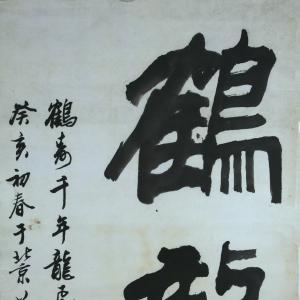 鶴
鶴壽千年龍
癸亥初春于京